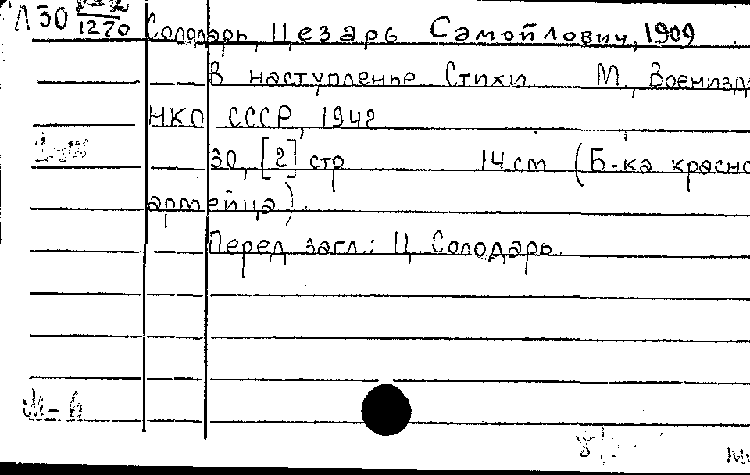 Л30
1270
Солодарь, Цезарь Самойлович, 1909
В наступление Стихи М, Воениздат
НКО СССР, 1942
30, [2] стр 14 см (Б-ка красно
армейца).
Перед загл.: Ц Солодарь.